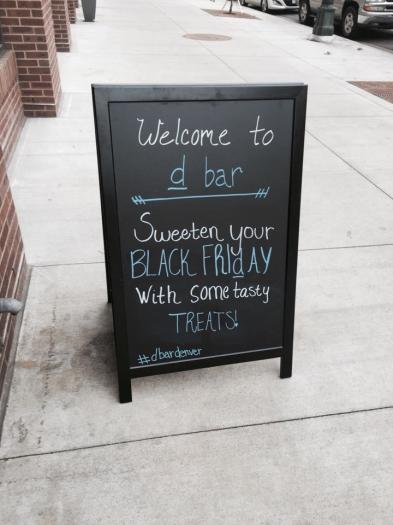 Welcome to
d bar
Sweeten your
BLACK FRIdAY
With some tasty
TREATS!
#dbardenver